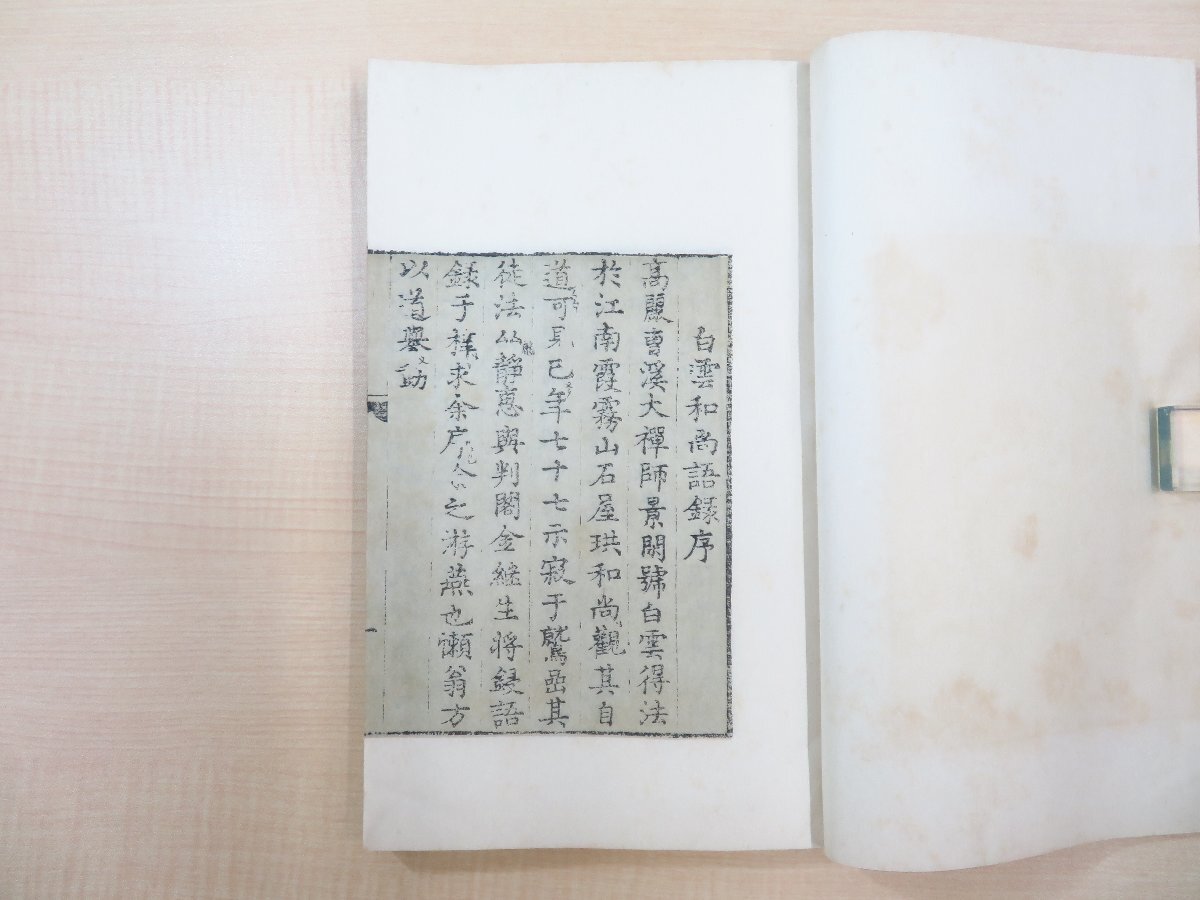 白雲和尚語錄序
高麗曹溪大禪師景閑號白雲得法
於江南霞霧山石屋珙和尚觀其自
道可見已年七十七示寂于鷲嵒其
徒法灬靜惠與判閣金継生將録語
録于稱求余序余之游燕也懶翁方
以道譽動
一